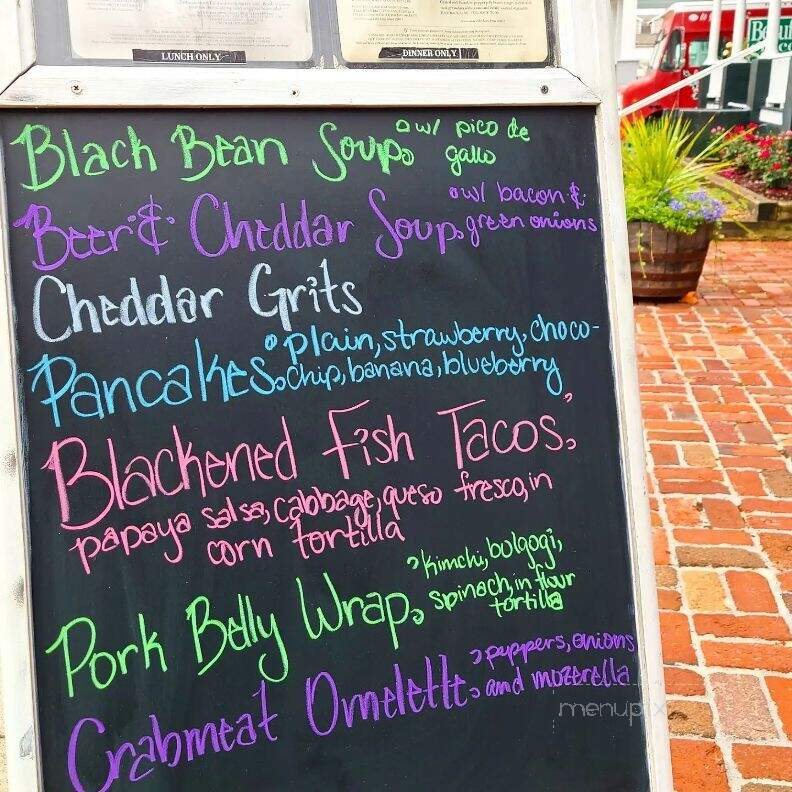 LUNCH ONLY
DINNER ONLY
Black Bean Soup w/ pico de
gallo
Beer & Cheddar Soup w/ bacon &
green onions
Cheddar Grits
Pancakes plain, strawberry, choco-
chip, banana, blueberry
Blackened Fish Tacos,
papaya salsa, cabbage, queso fresco, in
corn tortilla
Pork Belly Wrap, kimchi, bolgogi,
spinach, in flour
tortilla
Crabmeat Omelette, peppers, onions
and mozerella
menupix